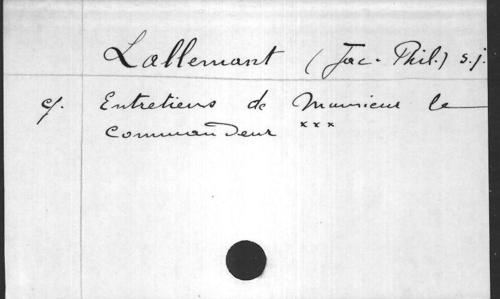 Lallemant (Jac. Phil.) s.j.
cf. Entretiens de Monsieur le
Commandeur xxx